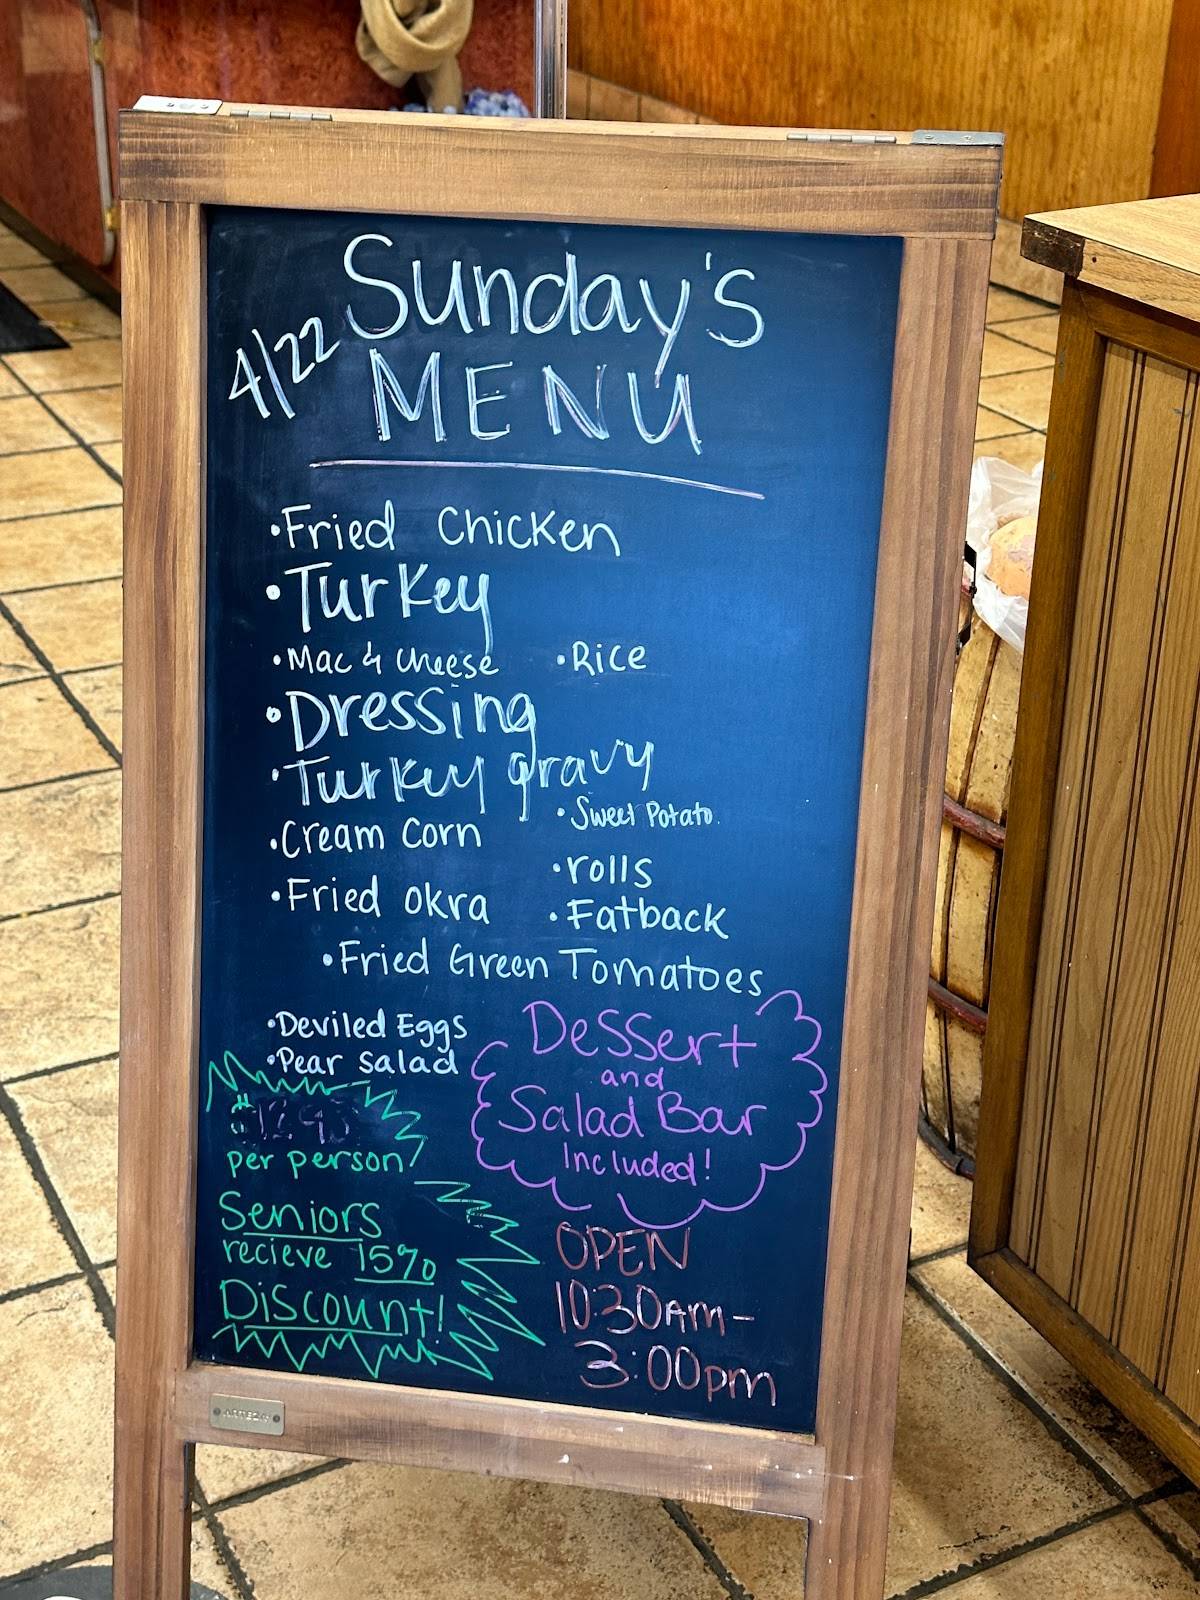 Sunday's
4/22
MENU
• Fried Chicken
• Turkey
• Mac & Cheese • Rice
• Dressing
• Turkey gravy
• Sweet Potato.
• Cream Corn
• rolls
• Fried Okra • Fatback
• Fried Green Tomatoes
• Deviled Eggs
• Pear Salad
Dessert
and
Salad Bar
Included!
per person
Seniors
recieve 15%
Discount!
OPEN
10:30AM-
3:00pm
ARTEZA